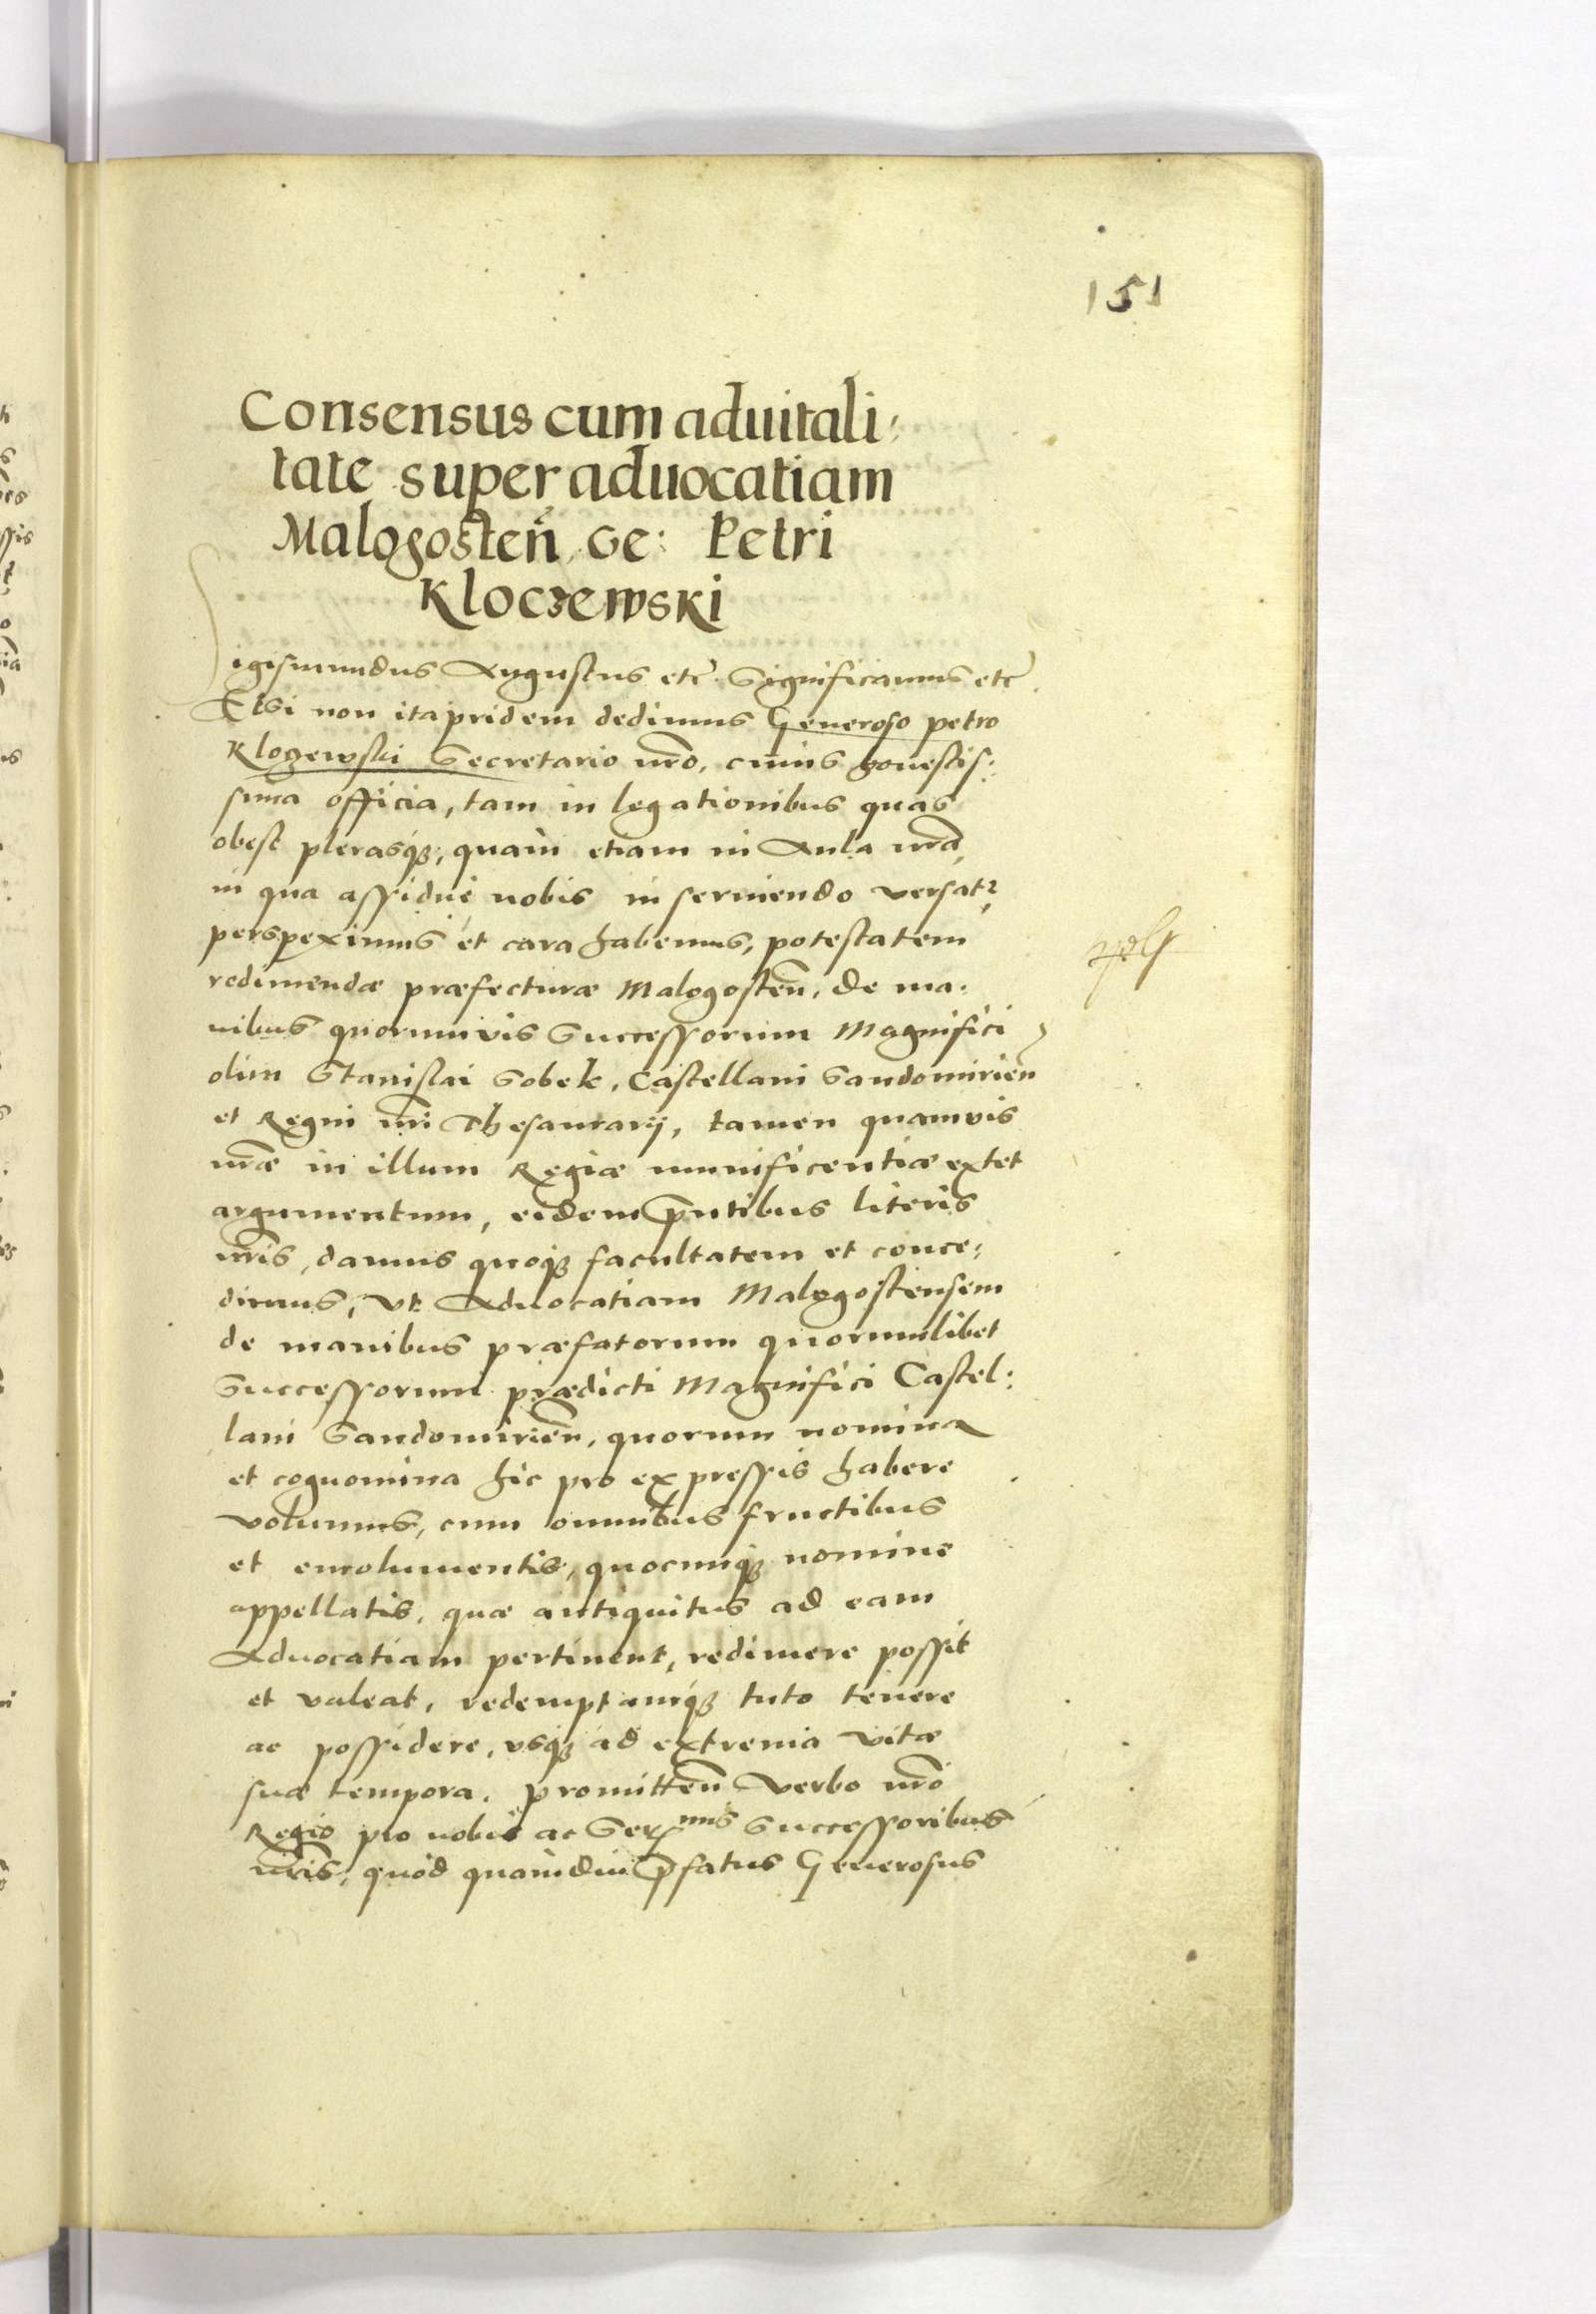 151
Consensus cum aduitali:
tate super aduocatiam
Malogosten̄ Ge: Petri
Kloczewski
igismundus Augustus etc̄ Significamus etc̄.
Etsi non itapridem dedimus Generoso petro
Klozewski Secretario nr̄o, cuius honestis:
sima officia, tam in legationibus quas
obest plerasq;, quam etiam in Aula nr̄a,
in qua assidue nobis in seruiendo versat,
perspeximus et cara habemus, potestatem
redimendæ præfecturæ Malogosten̄, de ma:
nibus quorumuis Successorum Magnifici
olim Stanislai Sobek, Castellani Sandomirien̄
et Regni nr̄i Thesaurarij, tamen quamuis
nr̄æ in illum Regiæ munificentiæ extet
argumentum, eidem pn̄tibus literis
nr̄is, damus quoq; facultatem et conce:
dimus, vt Aduocatiam Malogostensem
de manibus præfatorum quorumlibet
Successorum prædicti Magnifici Castel:
lani Sandomirien̄, quorum nomina
et cognomina hic pro expressis habere
volumus, cum omnibus fructibus
et emolumentis, quocunq; nomine
appellatis, quæ antiquitus ad eam
Aduocatiam pertinent, redimere possit
et valeat, redemptamq; tuto tenere
ac possidere, vsq; ad extrema vitæ
suæ tempora. promitten̄ verbo nr̄o
Regio pro nobis ac Ser^mis Successoribus
nr̄is, quod quamdiu p̄fatus Generosus